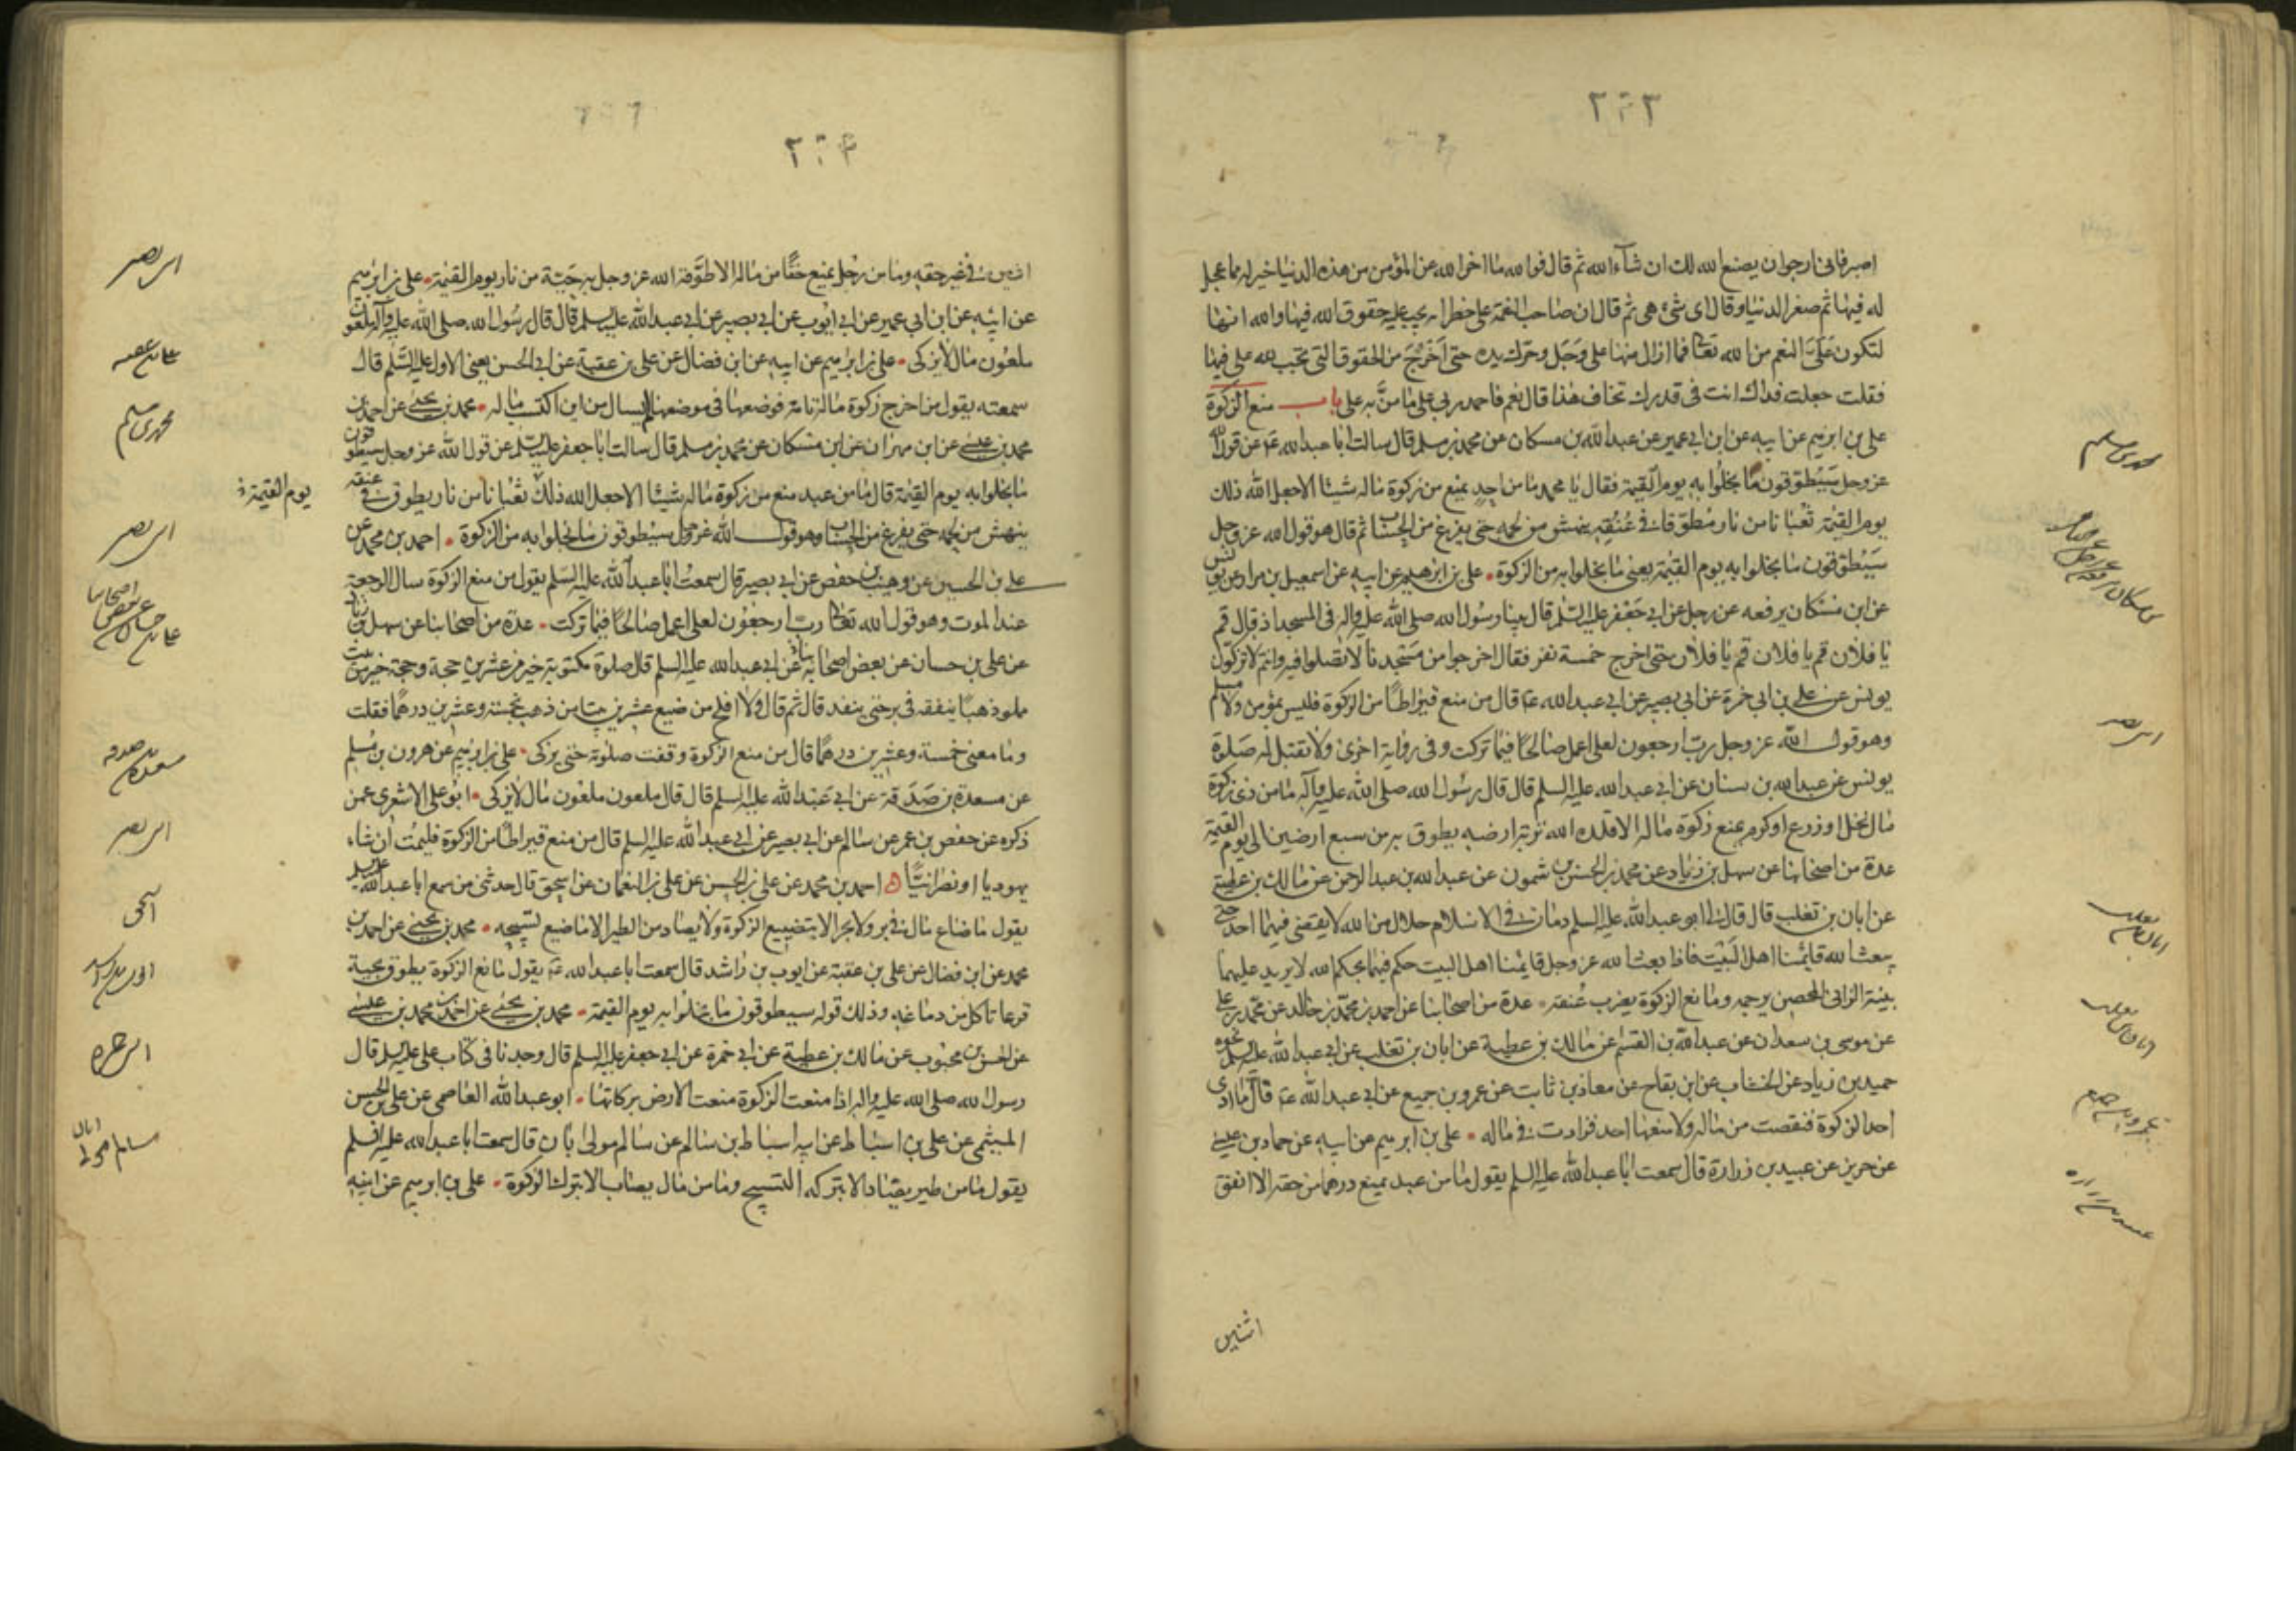 ٢٠٣
اصبر فانى ارجو ان يصنع الله لك ان شآء الله ثم قال فو الله ما اخر الله عن المؤمن من هذه الدنيا خير له مما عجل
له فيها ثم صغر الدنيا وقال اى شئ هى ثم قال ان صاحب النعمة على خطر انه يجب عليه حقوق الله فيها والله انها
لتكون علىّ النعم من الله تعالى فما ازال منها على وجل وحرك يده حتى اخرج من الحقوق التى تجب لله على فيها
فقلت جعلت فداك انت فى قدرك تخاف هذا قال نعم فاحمد ربى على ما منّ به على باب منع الزكوة
على بن ابرهيم عن ابيه عن ابن ابى عمير عن عبد الله بن مسكان عن محمد بن مسلم قال سالت ابا عبد الله ع عن قول الله
عز وجل سيطوقون ما بخلوا به يوم القيمة فقال يا محمد ما من احد يمنع من زكوة ماله شيئا الا جعل الله ذلك
يوم القيمة ثعبانا من نار مطوقا فى عنقه ينهش من لحمه حتى يفرغ من الحساب ثم قال هو قول الله عز وجل
سيطوقون ما بخلوا به يوم القيمة يعنى ما بخلوا به من الزكوة على بن ابرهيم عن ابيه عن اسمعيل بن مرار عن يونس
عن ابن مسكان يرفعه عن رجل عن ابى جعفر عليه السلم قال بينا رسول الله صلى الله عليه واله فى المسجد اذ قال قم
يا فلان قم يا فلان قم يا فلان حتى اخرج خمسة نفر فقال اخرجوا من مسجدنا لا تصلوا فيه وانتم لا تزكون
يونس عن على بن ابى حمزة عن ابى بصير عن ابى عبد الله ع قال من منع قيراطا من الزكوة فليس بمؤمن ولا مسلم
وهو قول الله عز وجل رب ارجعون لعلى اعمل صالحا فيما تركت وفى رواية اخرى ولا تقبل له صلوة
يونس عن عبد الله بن سنان عن ابى عبد الله عليه السلم قال قال رسول الله صلى الله عليه وآله ما من ذى زكوة
مال نخل او زرع او كرم يمنع زكوة ماله الا قلده الله تربة ارضه يطوق به من سبع ارضين الى يوم القيمة
عدة من اصحابنا عن سهل بن زياد عن محمد بن الحسن بن شمون عن عبد الله بن عبد الرحمن عن مالك بن عطية
عن ابان بن تغلب قال قال لى ابو عبد الله عليه السلم دمان فى الاسلام حلال من الله لا يقضى فيهما احد حتى
يبعث الله قائمنا اهل البيت فاذا بعث الله عز وجل قائمنا اهل البيت حكم فيهما بحكم الله لا يريد عليهما
بينة الزانى المحصن يرجمه ومانع الزكوة يضرب عنقه عدة من اصحابنا عن احمد بن محمد بن خالد عن محمد بن على
عن موسى بن سعدان عن عبد الله بن القسم عن مالك بن عطية عن ابان بن تغلب عن ابى عبد الله عليه السلم نحوه
حميد بن زياد عن الخشاب عن ابن بقاح عن معاذ بن ثابت عن عمرو بن جميع عن ابى عبد الله ع قال ما ادى
احد الزكوة فنقصت من ماله ولا منعها احد فزادت فى ماله على بن ابرهيم عن ابيه عن حماد بن عيسى
عن حريز عن عبيد بن زرارة قال سمعت ابا عبد الله عليه السلم يقول ما من عبد يمنع درهما من حقه الا انفق
اثنين
محمد بن مسلم
ابى بصير
ابان بن تغلب
ابان بن تغلب
عمرو بن جميع
عبيد بن زراره
٢٠٤
اثنين فى غير حقه وما من رجل يمنع حقا من ماله الا طوقه الله عز وجل به حية من نار يوم القيمة على بن ابرهيم
عن ابيه عن ابن ابى عمير عن ابى ايوب عن ابى بصير عن ابى عبد الله عليه السلم قال قال رسول الله صلى الله عليه وآله ملعون
ملعون مال لا يزكى على بن ابرهيم عن ابيه عن ابن فضال عن على بن عقبة عن ابى الحسن يعنى الاول عليه السلم قال
سمعته يقول من اخرج زكوة ماله تامة فوضعها فى موضعها لم يسال من اين اكتسب ماله محمد بن يحيى عن احمد بن
محمد بن عيسى عن ابن مهران عن ابن مسكان عن محمد بن مسلم قال سالت ابا جعفر عليه السلم عن قول الله عز وجل سيطوقون
ما بخلوا به يوم القيمة قال ما من عبد منع من زكوة ماله شيئا الا جعل الله ذلك ثعبانا من نار يطوق فى عنقه
ينهش من لحمه حتى يفرغ من الحساب وهو قول الله عز وجل سيطوقون ما بخلوا به من الزكوة احمد بن محمد عن
على بن الحسين عن وهيب بن حفص عن ابى بصير قال سمعت ابا عبد الله عليه السلم يقول من منع الزكوة سال الرجعة
عند الموت وهو قول الله تعالى رب ارجعون لعلى اعمل صالحا فيما تركت عدة من اصحابنا عن سهل بن زياد
عن على بن حسان عن بعض اصحابنا عن ابى عبد الله عليه السلم قال صلوة مكتوبة خير من عشرين حجة وحجة خير من بيت
مملو ذهبا ينفقه فى بر حتى ينفد قال ثم قال ولا افلح من ضيع عشرين بيتا من ذهب بخمسة وعشرين درهما فقلت
وما معنى خمسة وعشرين درهما قال من منع الزكوة وقفت صلوته حتى يزكى على بن ابرهيم عن هرون بن مسلم
عن مسعدة بن صدقة عن ابى عبد الله عليه السلم قال قال ملعون ملعون مال لا يزكى ابو على الاشعرى عمن
ذكره عن حفص بن عمر عن سالم عن ابى بصير عن ابى عبد الله عليه السلم قال من منع قيراطا من الزكوة فليمت ان شاء
يهوديا او نصرانيا احمد بن محمد عن على بن الحسن عن على بن النعمان عن اسحق قال حدثنى من سمع ابا عبد الله عليه السلم
يقول ما ضاع مال فى بر ولا بحر الا بتضييع الزكوة ولا يصاد من الطير الا ما ضيع تسبيحه محمد بن يحيى عن احمد بن
محمد عن ابن فضال عن على بن عقبة عن ايوب بن راشد قال سمعت ابا عبد الله ع يقول مانع الزكوة يطوق بحية
قرعا تاكل من دماغه وذلك قوله سيطوقون ما بخلوا به يوم القيمة محمد بن يحيى عن احمد بن محمد بن عيسى
عن الحسن بن محبوب عن مالك بن عطية عن ابى حمزة عن ابى جعفر عليه السلم قال وجدنا فى كتاب على عليه السلم قال
رسول الله صلى الله عليه واله اذا منعت الزكوة منعت الارض بركاتها ابو عبد الله العاصمى عن على بن الحسن
الميثمى عن على بن اسباط عن ابيه اسباط بن سالم عن سالم مولى ابان قال سمعت ابا عبد الله عليه السلم
يقول ما من طير يصاد الا بتركه التسبيح وما من مال يصاب الا بترك الزكوة على بن ابرهيم عن ابيه
ابى بصير
على بن عقبه
محمد بن مسلم
يوم القيمة
ابى بصير
على بن حسان عن بعض اصحابنا
مسعدة بن صدقه
ابى بصير
اسحق
ايوب بن راشد
ابى حمزه
سالم مولى ابان